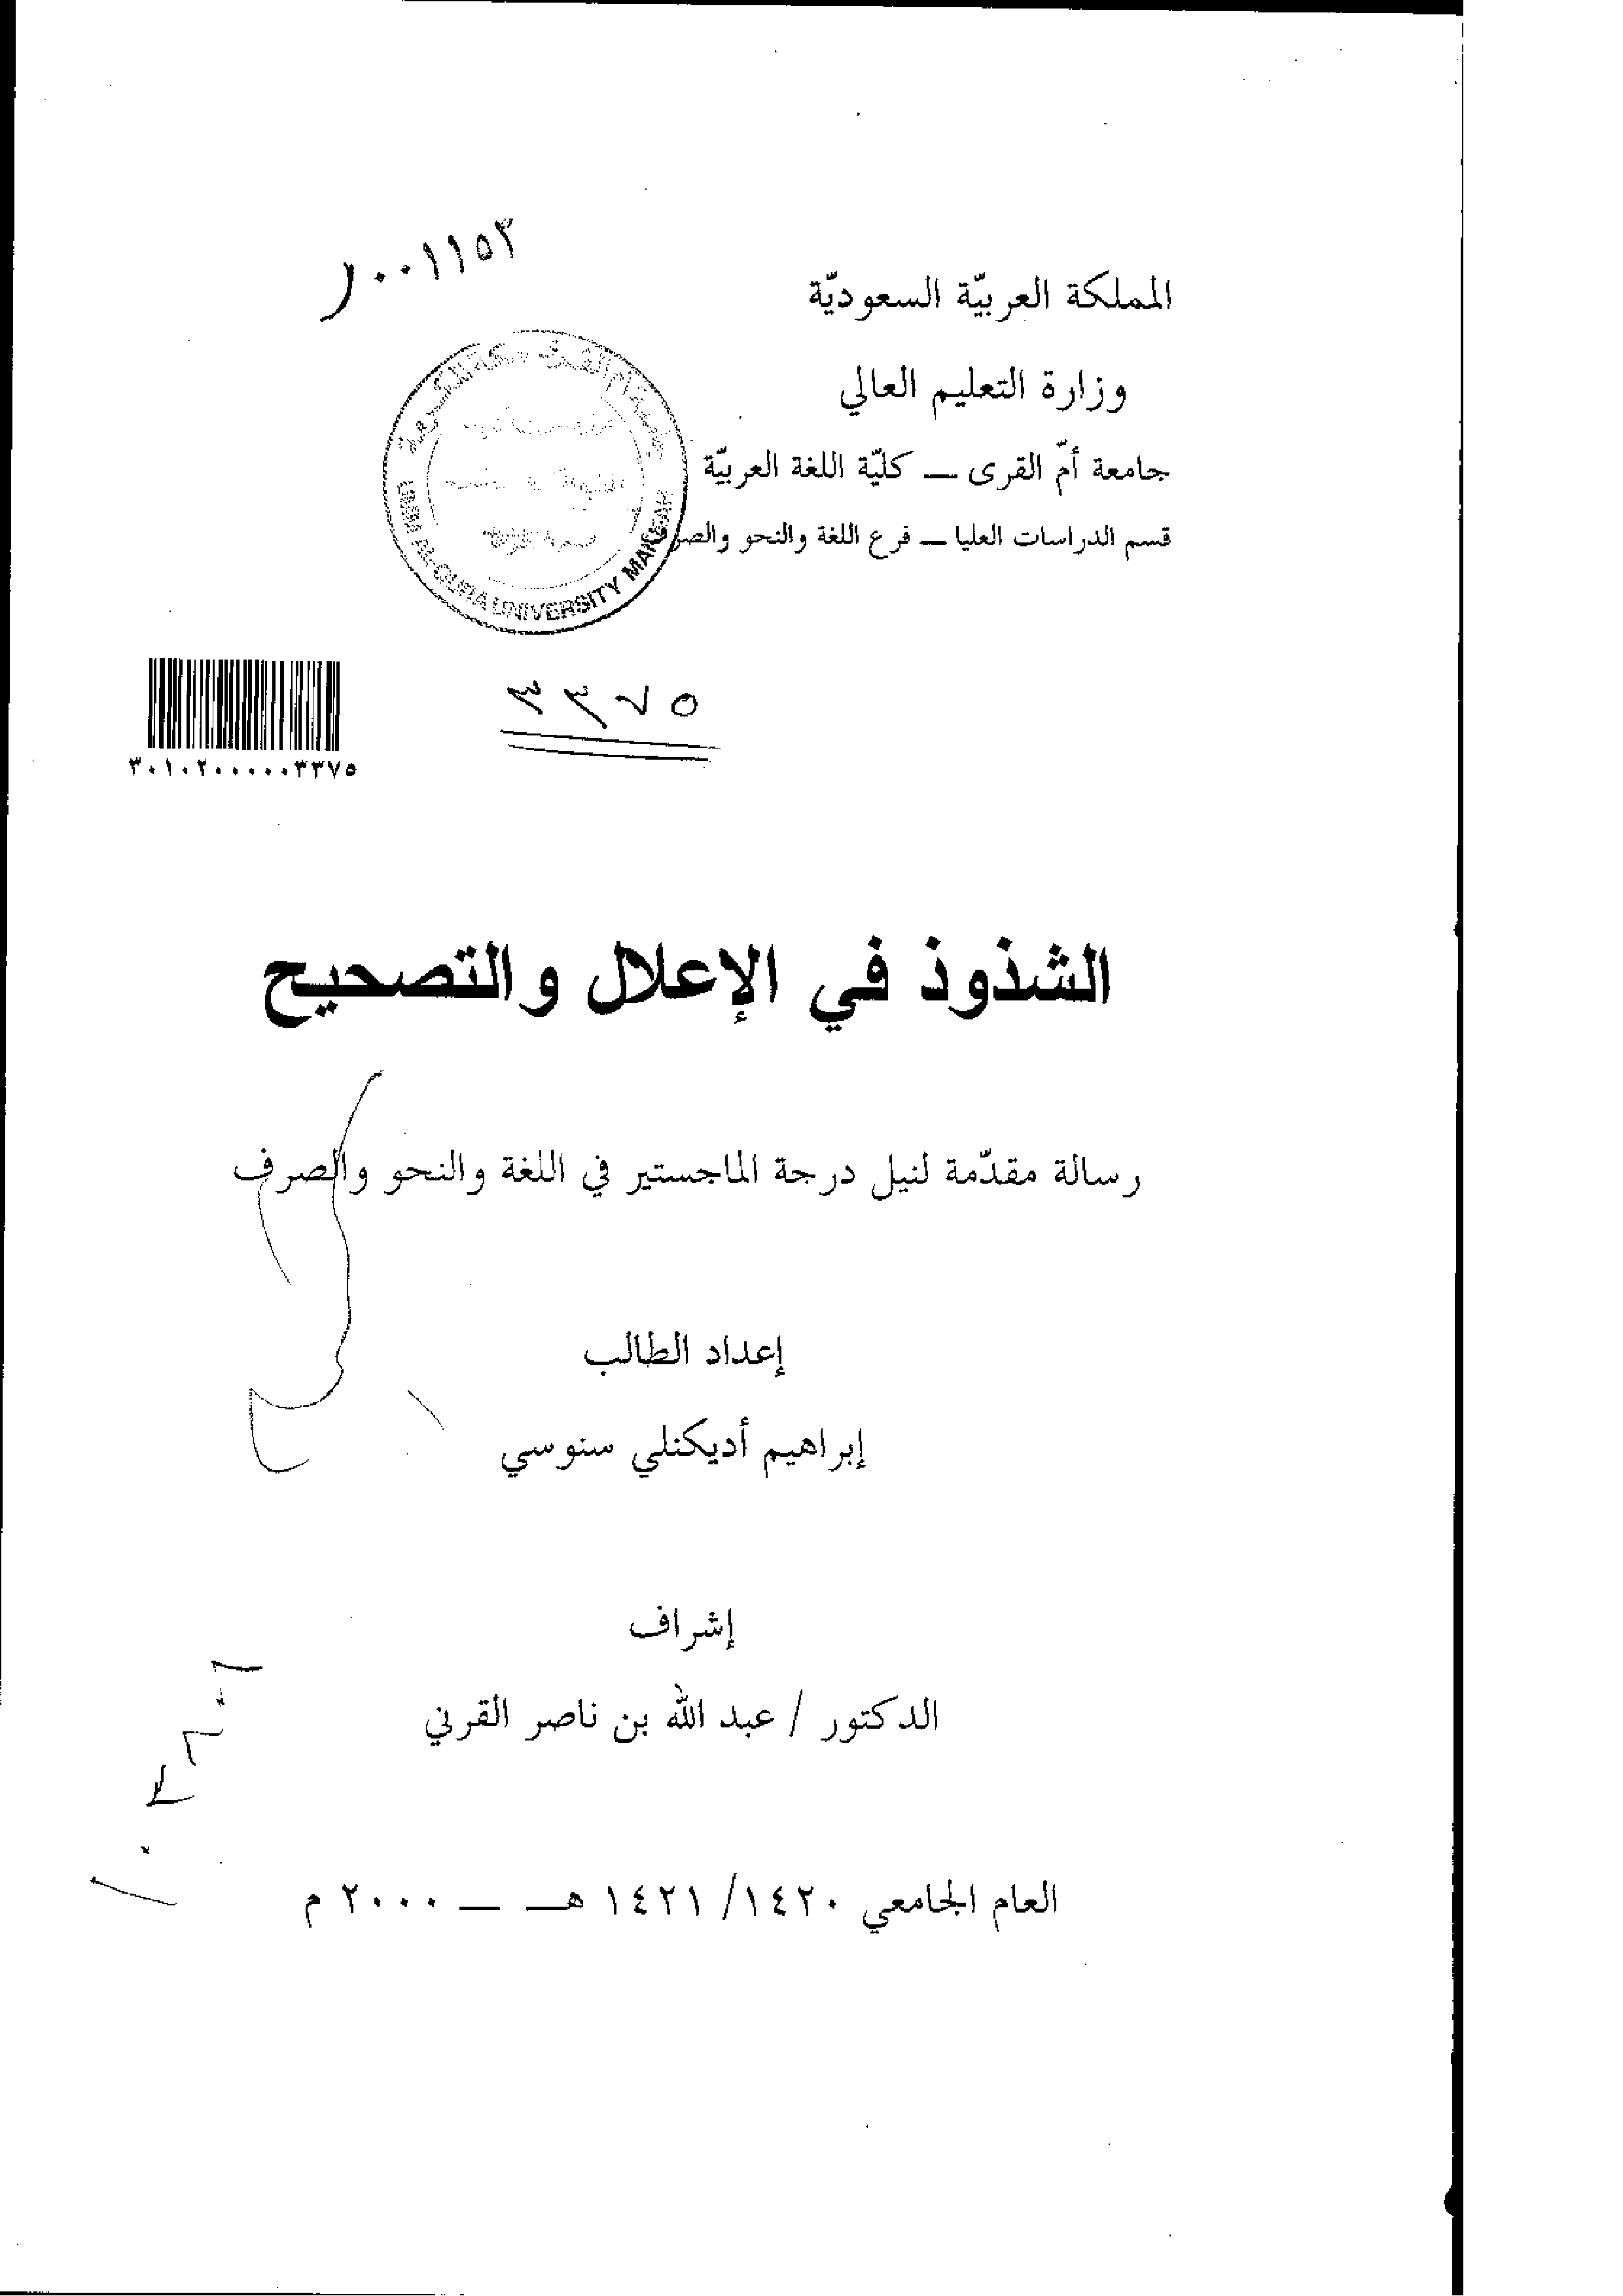 المملكة العربيّة السعوديّة
وزارة التعليم العالي
جامعة أمّ القرى ــ كليّة اللغة العربيّة
قسم الدراسات العليا ــ فرع اللغة والنحو والصرف
٠٠١١٥٣
UMM AL-QURA UNIVERSITY MAKKAH
٣٣٧٥
٣٠١٠٢٠٠٠٠٠٣٣٧٥
الشذوذ في الإعلال والتصحيح
رسالة مقدّمة لنيل درجة الماجستير في اللغة والنحو والصرف
إعداد الطالب
إبراهيم أديكنلي سنوسي
إشراف
الدكتور / عبد الله بن ناصر القرني
العام الجامعي ١٤٢٠/ ١٤٢١ هـ ــ ٢٠٠٠ م